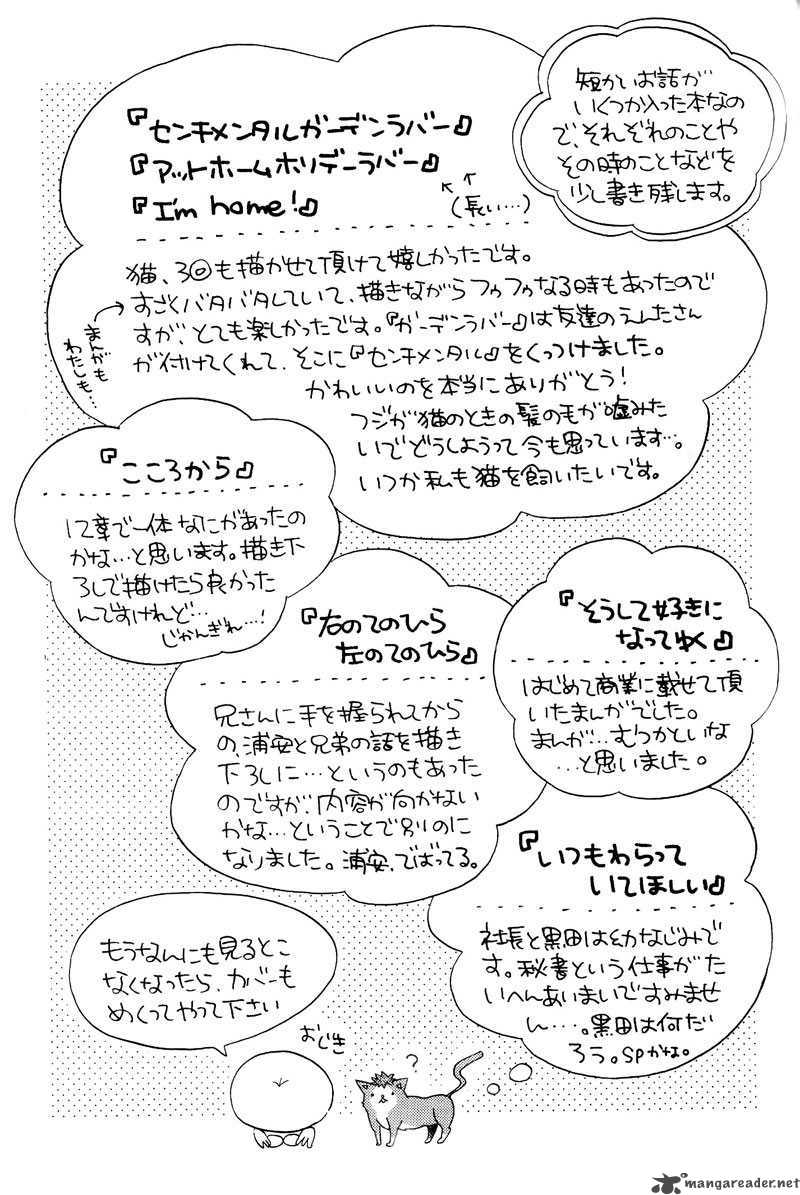 短かいお話が
いくつか入った本なの
で、それぞれのことや
その時のことなどを
少し書き残します。
『センチメンタルガーデンラバー』
『アットホームホリデーラバー』
『I'm home!』
(長い…)
猫、3回も描かせて頂けて嬉しかったです。
すごくバタバタしていて、描きながらフゥフゥなる時もあったので
すが、とても楽しかったです。『ガーデンラバー』は友達のえんたさん
が付けてくれて、そこに『センチメンタル』をくっつけました。
かわいいのを本当にありがとう!
フジが猫のときの髪の毛が嘘みた
いでどうしようって今も思っています…。
いつか私も猫を飼いたいです。
まんがも
わたしも…
『こころから』
12章で一体なにがあったの
かな…と思います。描き下
ろしで描けたら良かった
んですけれど…
じかんぎれ…!
『右のてのひら
左のてのひら』
兄さんに手を握られてから
の、浦安と兄弟の話を描き
下ろしに…というのもあった
のですが、内容が向かない
かな…ということで別のに
なりました。浦安、でばってる。
『そうして好きに
なってゆく』
はじめて商業に載せて頂
いたまんがでした。
まんが…むつかといな
…と思いました。
『いつもわらって
いてほしい』
社長と黒田は幼なじみで
す。秘書という仕事がた
いへんあいまいですみませ
ん…。黒田は何だ
ろう。SPかな。
もうなんにも見るとこ
なくなったら、カバーも
めくってやって下さい
おじぎ
?
mangareader.net